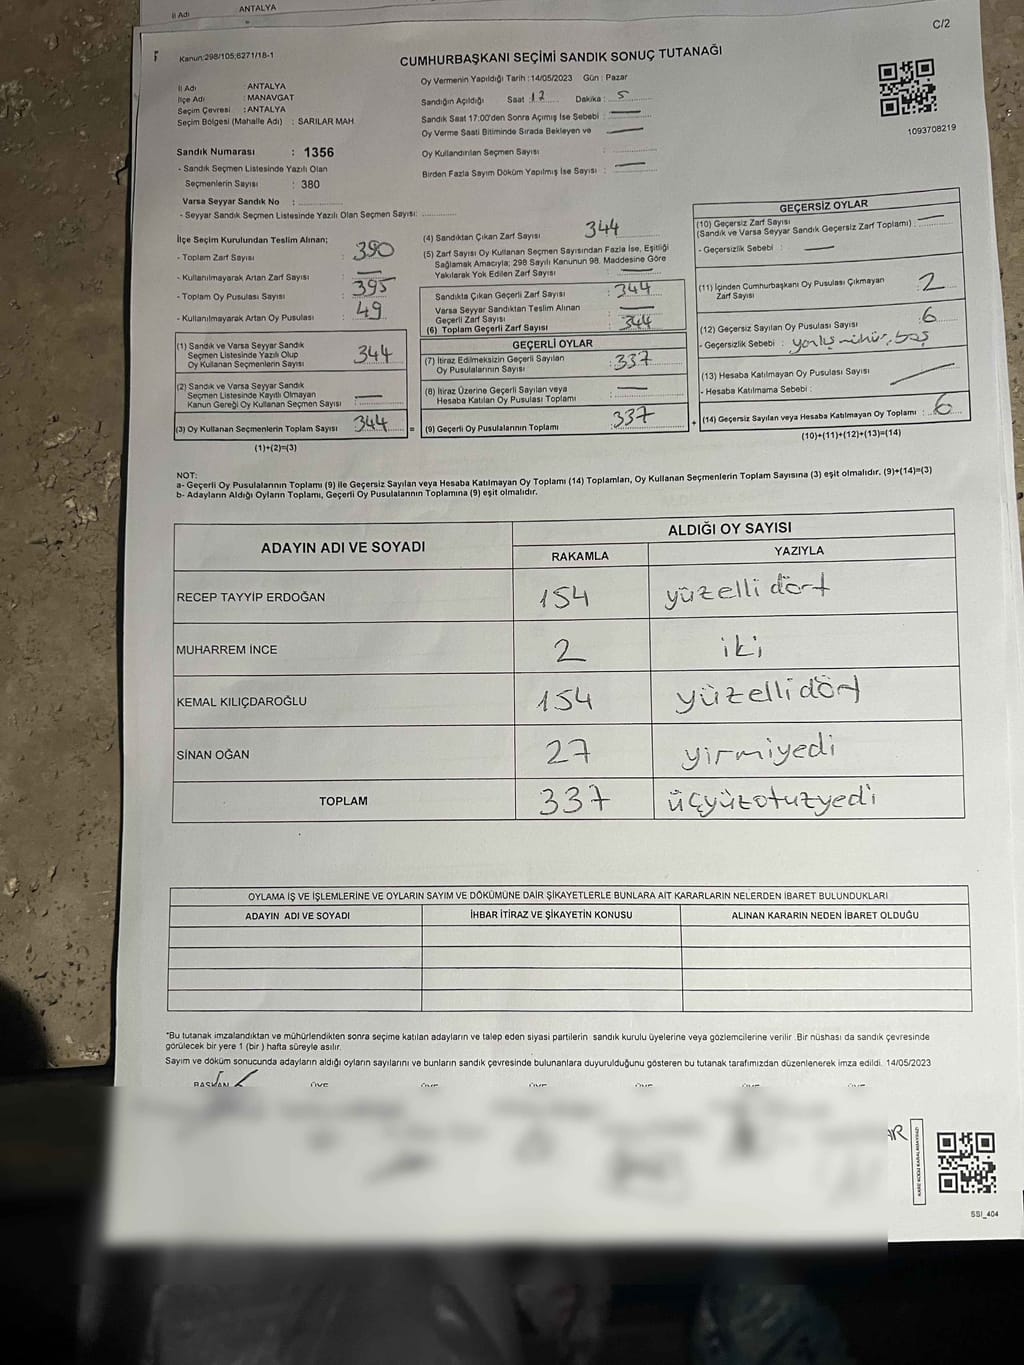 İl Adı ANTALYA
C/2
Kanun:298/105;6271/18-1
CUMHURBAŞKANI SEÇİMİ SANDIK SONUÇ TUTANAĞI
İl Adı : ANTALYA
İlçe Adı : MANAVGAT
Seçim Çevresi : ANTALYA
Seçim Bölgesi (Mahalle Adı) : SARILAR MAH.
Oy Vermenin Yapıldığı Tarih :14/05/2023 Gün : Pazar
Sandığın Açıldığı Saat : 17 Dakika : 5
Sandık Saat 17:00'den Sonra Açımış İse Sebebi : —
Oy Verme Saati Bitiminde Sırada Bekleyen ve —
Oy Kullandırılan Seçmen Sayısı :
Birden Fazla Sayım Döküm Yapılmış İse Sayısı : —
1093708219
Sandık Numarası : 1356
- Sandık Seçmen Listesinde Yazılı Olan
Seçmenlerin Sayısı : 380
Varsa Seyyar Sandık No :
- Seyyar Sandık Seçmen Listesinde Yazılı Olan Seçmen Sayısı:
İlçe Seçim Kurulundan Teslim Alınan;
- Toplam Zarf Sayısı : 390
- Kullanılmayarak Artan Zarf Sayısı : —
- Toplam Oy Pusulası Sayısı : 395
- Kullanılmayarak Artan Oy Pusulası : 49
(1) Sandık ve Varsa Seyyar Sandık
Seçmen Listesinde Yazılı Olup
Oy Kullanan Seçmenlerin Sayısı : 344
(2) Sandık ve Varsa Seyyar Sandık
Seçmen Listesinde Kayıtlı Olmayan
Kanun Gereği Oy Kullanan Seçmen Sayısı : —
(3) Oy Kullanan Seçmenlerin Toplam Sayısı : 344
(1)+(2)=(3)
(4) Sandıktan Çıkan Zarf Sayısı : 344
(5) Zarf Sayısı Oy Kullanan Seçmen Sayısından Fazla İse, Eşitliği
Sağlamak Amacıyla; 298 Sayılı Kanunun 98. Maddesine Göre
Yakılarak Yok Edilen Zarf Sayısı : —
Sandıkta Çıkan Geçerli Zarf Sayısı : 344
Varsa Seyyar Sandıktan Teslim Alınan
Geçerli Zarf Sayısı : —
(6) Toplam Geçerli Zarf Sayısı : 344
GEÇERLİ OYLAR
(7) İtiraz Edilmeksizin Geçerli Sayılan
Oy Pusulalarının Sayısı : 337
(8) İtiraz Üzerine Geçerli Sayılan veya
Hesaba Katılan Oy Pusulası Toplamı : —
= (9) Geçerli Oy Pusulalarının Toplamı : 337
GEÇERSİZ OYLAR
(10) Geçersiz Zarf Sayısı
(Sandık ve Varsa Seyyar Sandık Geçersiz Zarf Toplamı) : —
- Geçersizlik Sebebi : —
(11) İçinden Cumhurbaşkanı Oy Pusulası Çıkmayan
Zarf Sayısı : 2
(12) Geçersiz Sayılan Oy Pusulası Sayısı : 6
- Geçersizlik Sebebi : yanlış mühür, boş
(13) Hesaba Katılmayan Oy Pusulası Sayısı :
- Hesaba Katılmama Sebebi :
+ (14) Geçersiz Sayılan veya Hesaba Katılmayan Oy Toplamı : 6
(10)+(11)+(12)+(13)=(14)
NOT:
a- Geçerli Oy Pusulalarının Toplamı (9) ile Geçersiz Sayılan veya Hesaba Katılmayan Oy Toplamı (14) Toplamları, Oy Kullanan Seçmenlerin Toplam Sayısına (3) eşit olmalıdır. (9)+(14)=(3)
b- Adayların Aldığı Oyların Toplamı, Geçerli Oy Pusulalarının Toplamına (9) eşit olmalıdır.
ADAYIN ADI VE SOYADI ALDIĞI OY SAYISI
RAKAMLA YAZIYLA
RECEP TAYYİP ERDOĞAN 154 yüzelli dört
MUHARREM İNCE 2 iki
KEMAL KILIÇDAROĞLU 154 yüzelli dört
SİNAN OĞAN 27 yirmiyedi
TOPLAM 337 üçyüzotuzyedi
OYLAMA İŞ VE İŞLEMLERİNE VE OYLARIN SAYIM VE DÖKÜMÜNE DAİR ŞİKAYETLERLE BUNLARA AİT KARARLARIN NELERDEN İBARET BULUNDUKLARI
ADAYIN ADI VE SOYADI İHBAR İTİRAZ VE ŞİKAYETİN KONUSU ALINAN KARARIN NEDEN İBARET OLDUĞU
*Bu tutanak imzalandıktan ve mühürlendikten sonra seçime katılan adayların ve talep eden siyasi partilerin sandık kurulu üyelerine veya gözlemcilerine verilir .Bir nüshası da sandık çevresinde
görülecek bir yere 1 (bir ) hafta süreyle asılır.
Sayım ve döküm sonucunda adayların aldığı oyların sayılarını ve bunların sandık çevresinde bulunanlara duyurulduğunu gösteren bu tutanak tarafımızdan düzenlenerek imza edildi. 14/05/2023
BAŞKAN ÜYE ÜYE ÜYE ÜYE ÜYE ÜYE
AR
KARE KODU KARALAMAYINIZ!
SSI_404